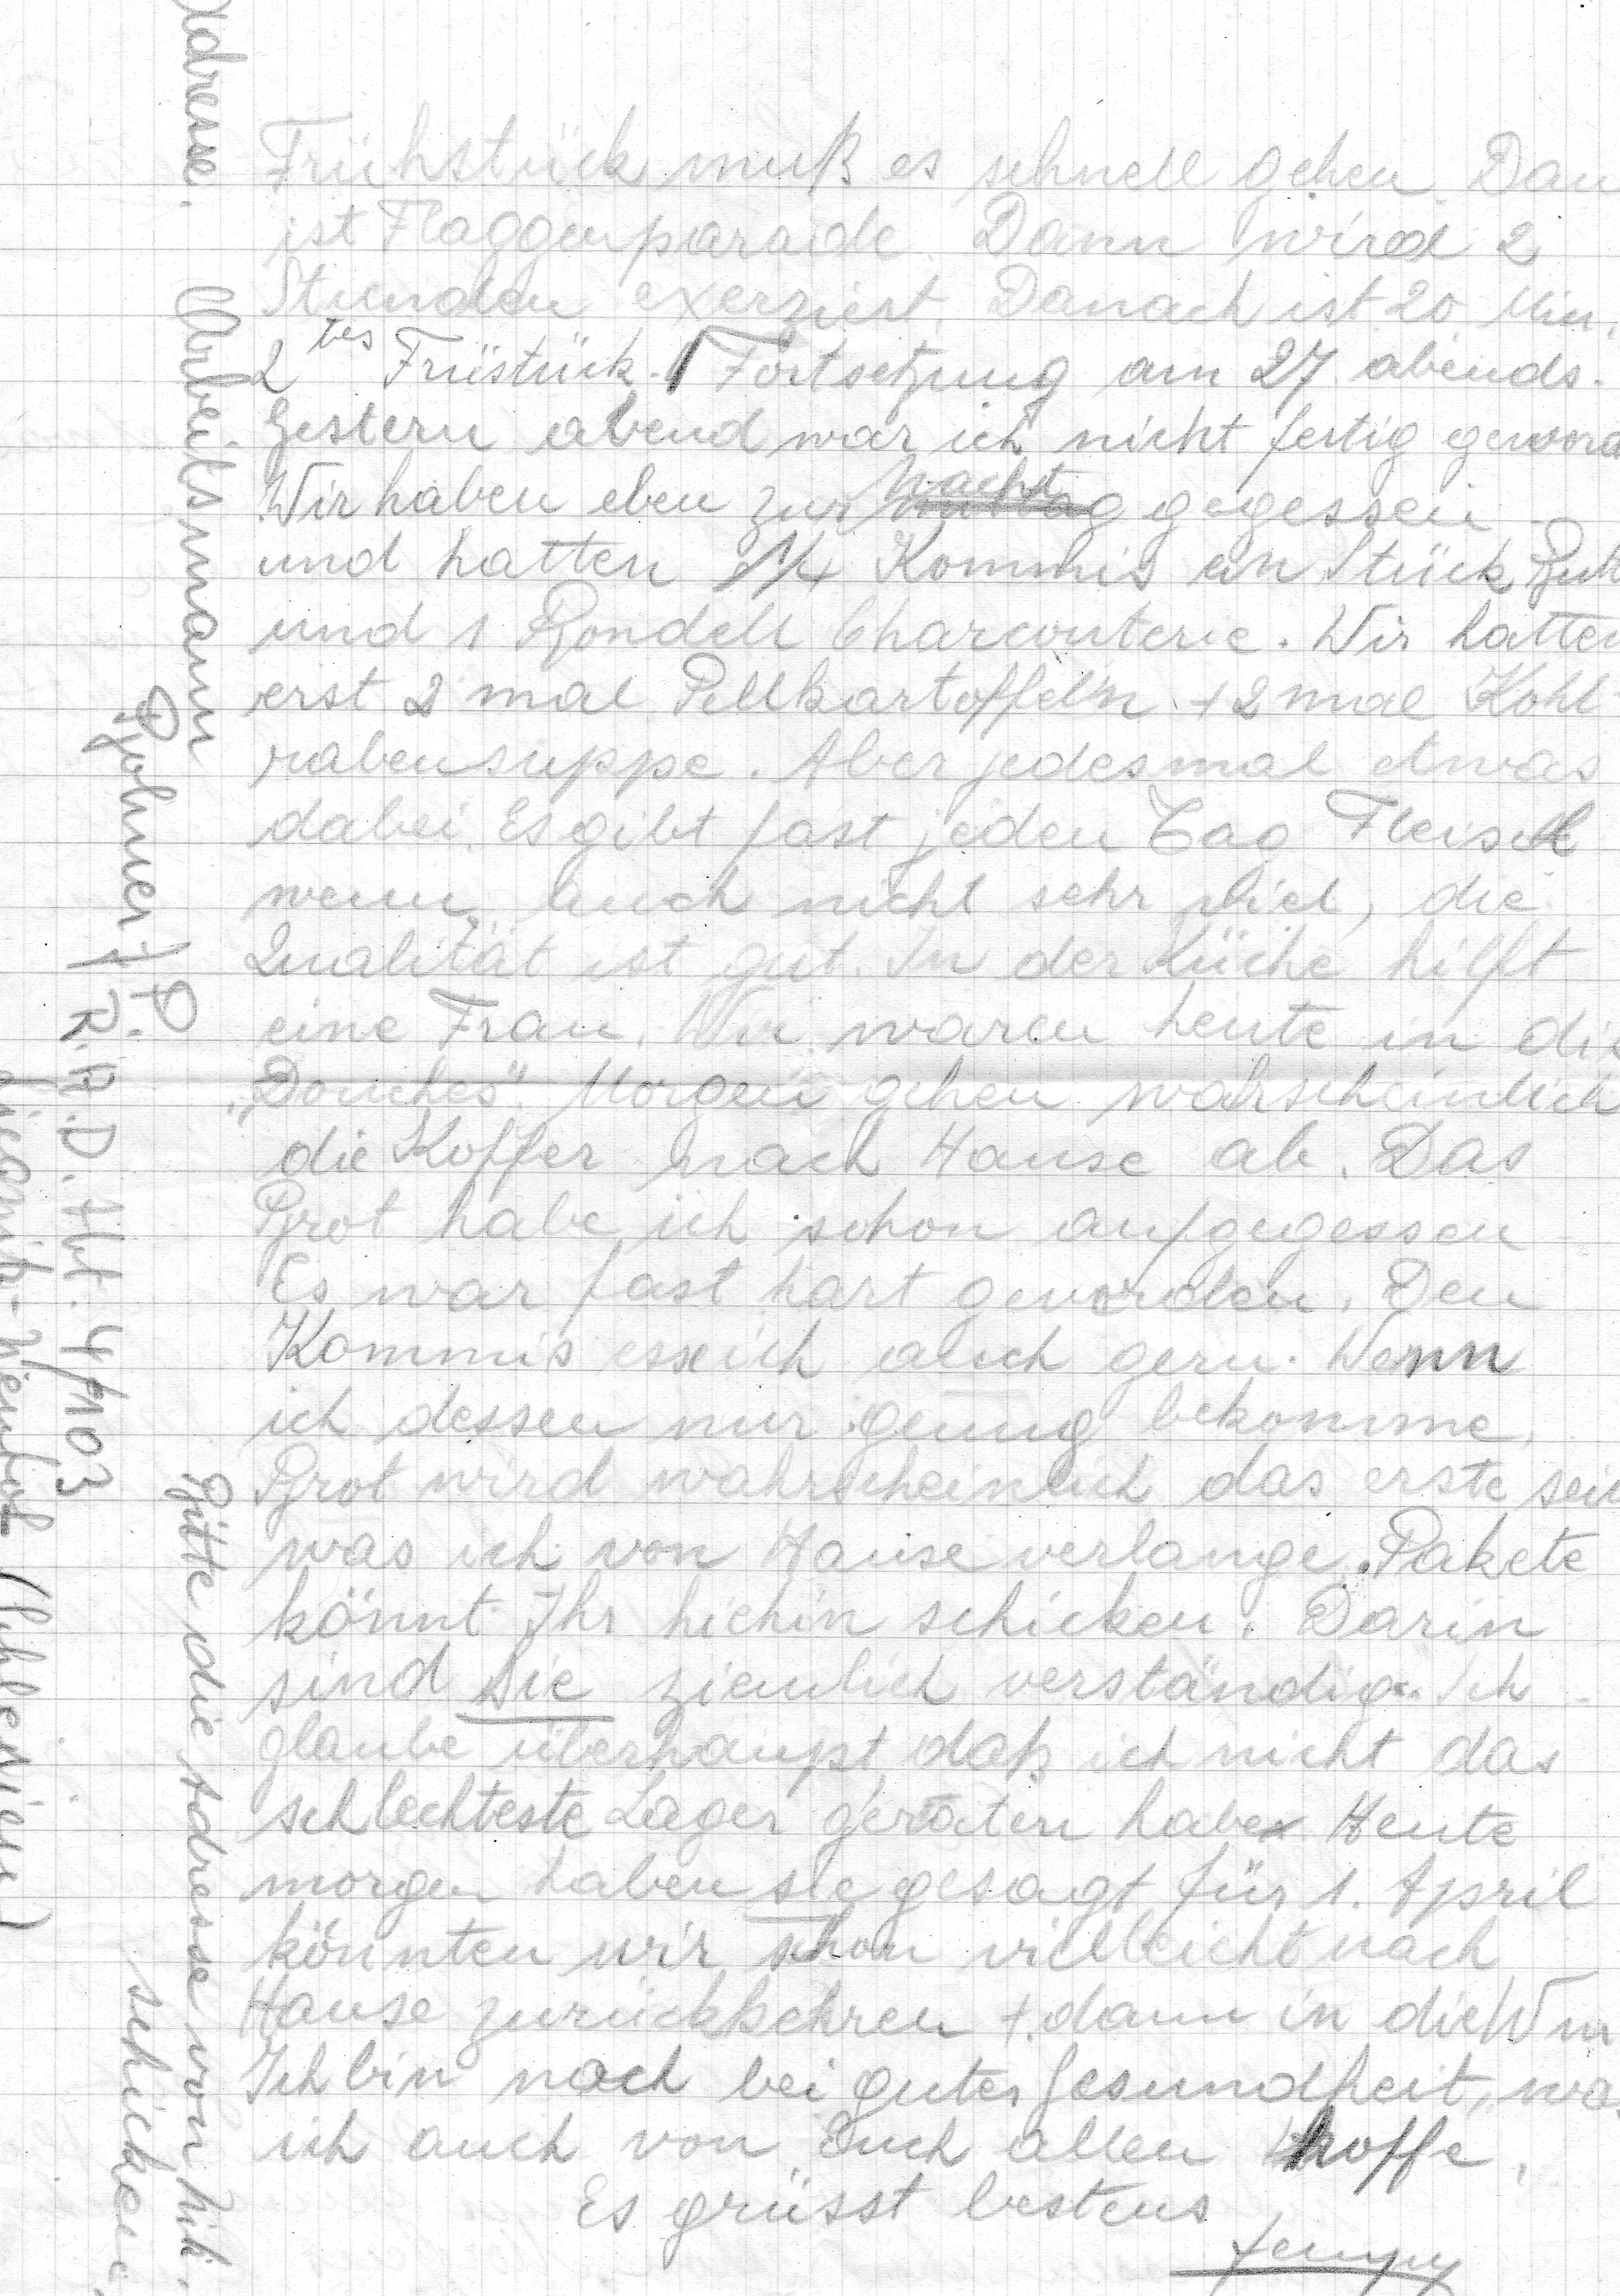 Frühstück muß es schnell gehen. Dan
ist Flaggenparade. Dann wird 2
Stunden exerziert. Danach ist 20 Min.
2tes Früstück. Fortsetzung am 27 abends.
Gestern abend war ich nicht fertig geword
Wir haben eben zur Nacht gegessen
und hatten 1/4 Kommis ein Stück Butt
und 1 Rondell Charcouterie. Wir hatten
erst 2 mal Pellkartoffeln + 2 mal Kohl
rabensuppe. Aber jedesmal etwas
dabei. Es gibt fast jeden Tag Fleisch
wenn auch nicht sehr viel, die
Qualität ist gut. In der Küche hilft
eine Frau. Wir waren heute in die
"Douches". Morgen gehen wahrscheinlich
die Koffer nach Hause ab. Das
Brot habe ich schon aufgegessen
Es war fast hart geworden. Den
Kommis esse ich auch gern. Wenn
ich dessen nur genug bekomme.
Brot wird wahrscheinlich das erste sein
was ich von Hause verlange. Pakete
könnt Ihr hiehin schicken. Darin
sind Sie ziemlich verständig. Ich
glaube überhaupt, daß ich nicht das
schlechteste Lager geraten habe. Heute
morgen haben sie gesagt für 1. April
könnten wir schon vielleicht nach
Hause zurückkehren + dann in die Wm
Ich bin noch bei guter Gesundheit, was
ich auch von Euch allen hoffe.
Es grüsst bestens
Jempy
Adresse. Arbeitsmann
Bohnert J P.
R.A.D. Abt. 4/103
(Schlesien)
Bitte die Adresse von Nik.
schicken.